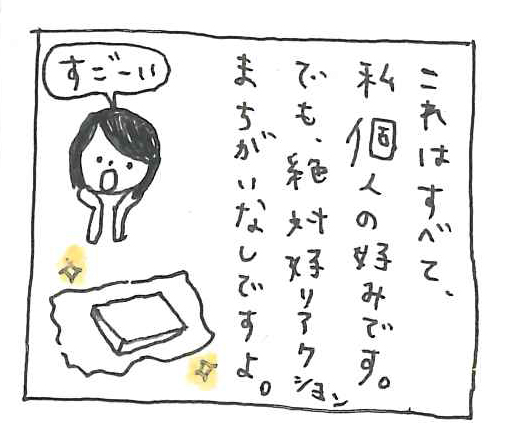 これはすべて、
私個人の好みです。
でも、絶対好リアクション
まちがいなしですよ。
すごーい